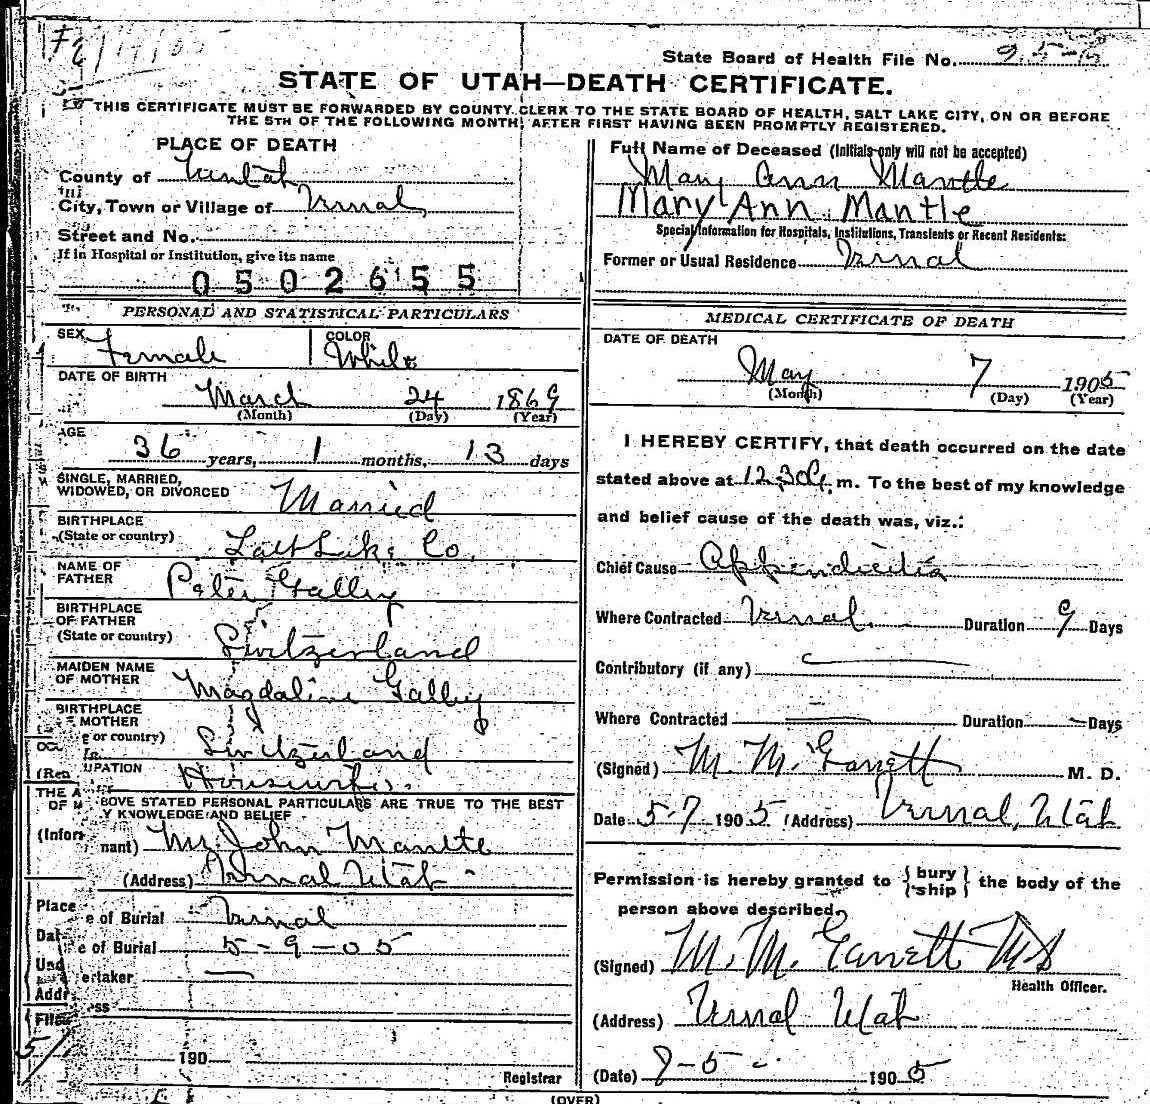 State Board of Health File No.
STATE OF UTAH—DEATH CERTIFICATE.
THIS CERTIFICATE MUST BE FORWARDED BY COUNTY CLERK TO THE STATE BOARD OF HEALTH, SALT LAKE CITY, ON OR BEFORE
THE 5TH OF THE FOLLOWING MONTH, AFTER FIRST HAVING BEEN PROMPTLY REGISTERED.
PLACE OF DEATH
County of Uintah
City, Town or Village of Vernal
Street and No.
If in Hospital or Institution, give its name
0502655
PERSONAL AND STATISTICAL PARTICULARS
SEX Female COLOR White
DATE OF BIRTH
March 24 1869
(Month) (Day) (Year)
AGE
36 years, 1 months, 13 days
SINGLE, MARRIED,
WIDOWED, OR DIVORCED Married
BIRTHPLACE
(State or country) Salt Lake Co.
NAME OF
FATHER Peter Galley
BIRTHPLACE
OF FATHER
(State or country) Switzerland
MAIDEN NAME
OF MOTHER Magdaline Galley
BIRTHPLACE
MOTHER
e or country) Switzerland
UPATION Housewife.
THE A BOVE STATED PERSONAL PARTICULARS ARE TRUE TO THE BEST
OF M Y KNOWLEDGE AND BELIEF
(Infor nant) Mr John Mantle
(Address) Vernal Utah
Place e of Burial Vernal
Dat e of Burial 5-9-05
Und ertaker —
Addr ss
File
190
Registrar
Full Name of Deceased (Initials only will not be accepted)
Mary Ann Mantle
Mary Ann Mantle
Special Information for Hospitals, Institutions, Transients or Recent Residents:
Former or Usual Residence Vernal
MEDICAL CERTIFICATE OF DEATH
DATE OF DEATH
May 7 1905
(Month) (Day) (Year)
I HEREBY CERTIFY, that death occurred on the date
stated above at 12.30 m. To the best of my knowledge
and belief cause of the death was, viz.:
Chief Cause Appendicitis
Where Contracted Vernal. Duration 9 Days
Contributory (if any)
Where Contracted Duration Days
(Signed) M. M. Garrett M. D.
Date 5-7 1905 (Address) Vernal, Utah
Permission is hereby granted to { bury ship } the body of the
person above described,
(Signed) M. M. Garrett
Health Officer.
(Address) Vernal Utah
(Date) 1905
(OVER)